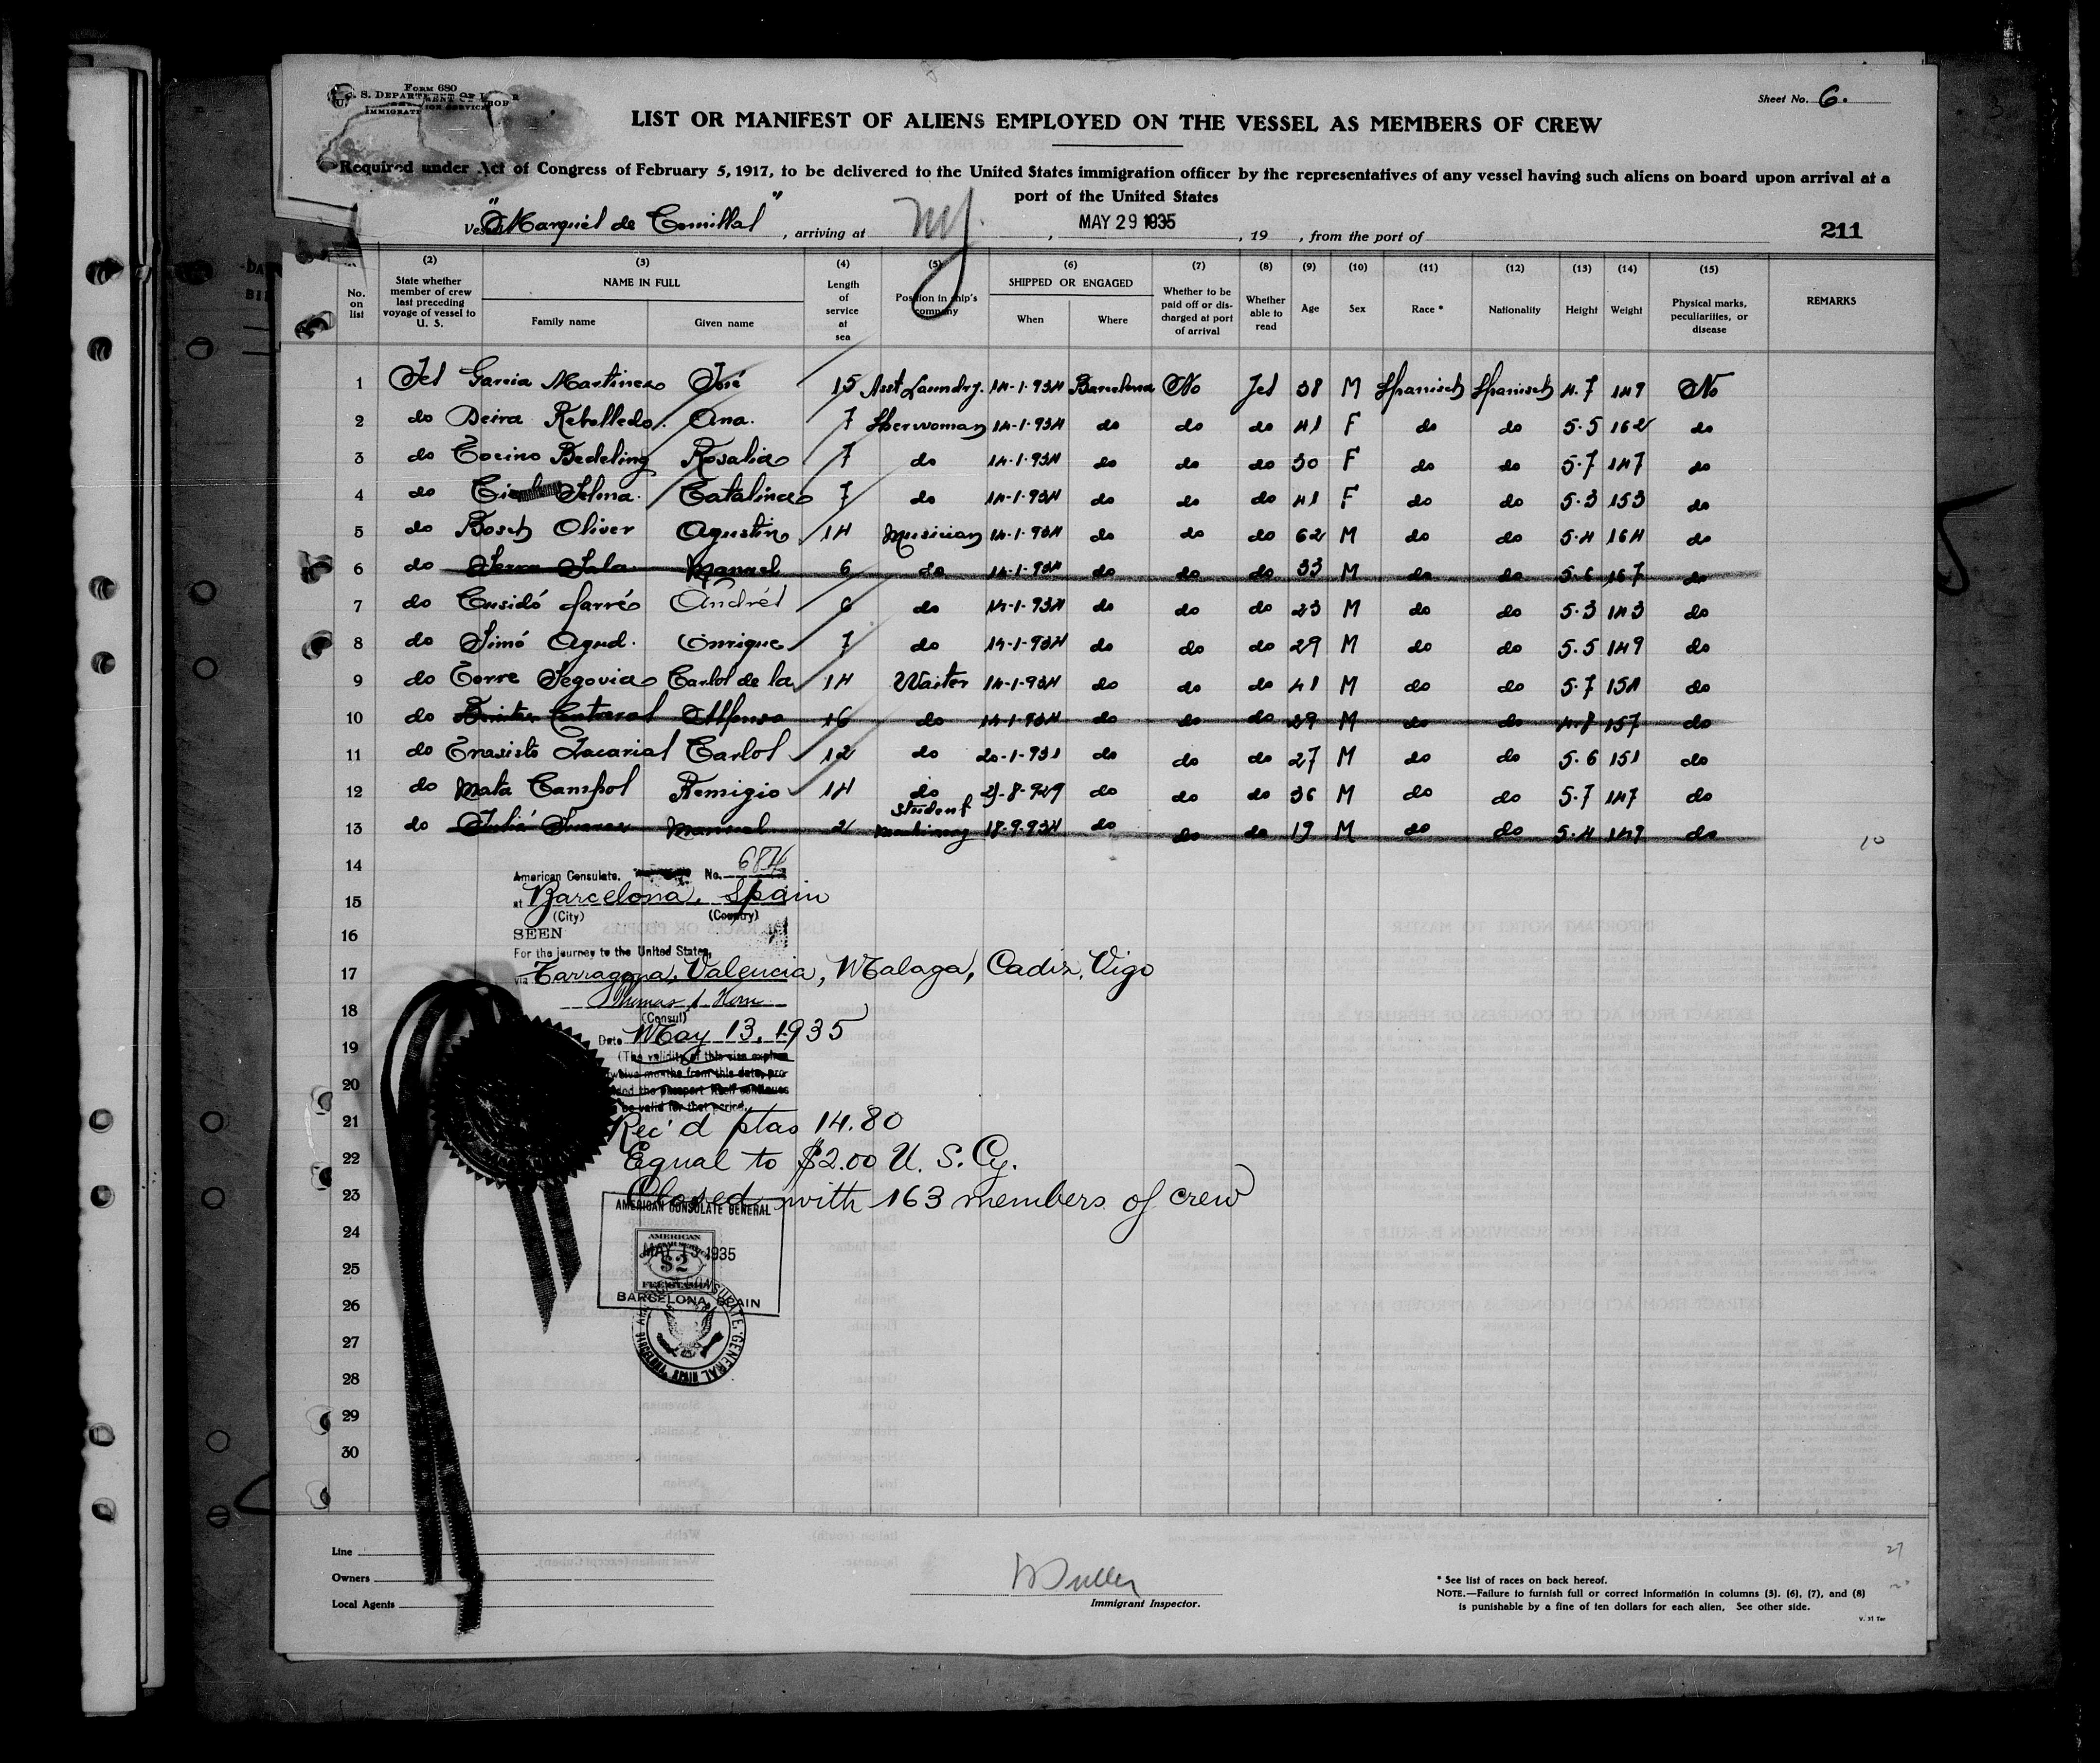 Form 680
U. S. Department of Labor
Immigration Service
Sheet No. 6.
LIST OR MANIFEST OF ALIENS EMPLOYED ON THE VESSEL AS MEMBERS OF CREW
Required under Act of Congress of February 5, 1917, to be delivered to the United States immigration officer by the representatives of any vessel having such aliens on board upon arrival at a
port of the United States
Vessel "Marqués de Comillas", arriving at NY, MAY 29 1935, 19 , from the port of
211
(2) (3) (4) (5) (6) (7) (8) (9) (10) (11) (12) (13) (14) (15)
No. on list | State whether member of crew last preceding voyage of vessel to U. S. | NAME IN FULL Family name Given name | Length of service at sea | Position in ship's company | SHIPPED OR ENGAGED When Where | Whether to be paid off or discharged at port of arrival | Whether able to read | Age | Sex | Race * | Nationality | Height | Weight | Physical marks, peculiarities, or disease | REMARKS
1 Yes Garcia Martinez José 15 Asst Laundry. 14-1-934 Barcelona No Yes 38 M Spanisch Spanisch 4.7 149 No
2 do Deira Rebolledo Ana. 7 14-1-934 do do do 41 F do do 5.5 162 do
3 do Rosalia 7 do 14-1-934 do do do 30 F do do 5.7 147 do
4 do Selma. Catalina 7 do 14-1-934 do do do 41 F do do 5.3 153 do
5 do Bosch Oliver Agustin 14 Musician 14-1-934 do do do 62 M do do 5.4 164 do
6 do Serra Sala Manuel 6 do 14-1-934 do do do 33 M do do 5.6 167 do
7 do Cusidó Farré Andrés 6 do 14-1-934 do do do 23 M do do 5.3 143 do
8 do Simó Agud. Enrique 7 do 14-1-934 do do do 29 M do do 5.5 149 do
9 do Torre Segovia Carlos de la 14 Waiter 14-1-934 do do do 41 M do do 5.7 151 do
10 do Contreras Alfonso 16 do 14-1-934 do do do 39 M do do 4.8 157 do
11 do Zacarias Carlos 12 do 20-1-931 do do do 27 M do do 5.6 151 do
12 do Mata Campos Remigio 14 do 21-8-929 do do do 36 M do do 5.7 147 do
Student
13 do Juliá Suarez Manuel 2 18-9-934 do do do 19 M do do 5.4 149 do
10
14
15
16
17
18
19
20
21
22
23
24
25
26
27
28
29
30
American Consulate, No. 687
at Barcelona, Spain
(City) (Country)
SEEN
For the journey to the United States,
via Tarragona, Valencia, Malaga, Cadiz, Vigo
(Consul)
Date May 13, 1935
(The validity of this visa expires
twelve months from this date, pro-
vided the passport itself continues
be valid for that period.
Rec'd ptas 14.80
Equal to $2.00 U. S. Cy.
Closed with 163 members of crew
AMERICAN CONSULATE GENERAL
AMERICAN
MAY 13 1935
$2
BARCELONA, SPAIN
Line
Owners
Local Agents
Immigrant Inspector.
* See list of races on back hereof.
NOTE.—Failure to furnish full or correct information in columns (3), (6), (7), and (8)
is punishable by a fine of ten dollars for each alien. See other side.
27